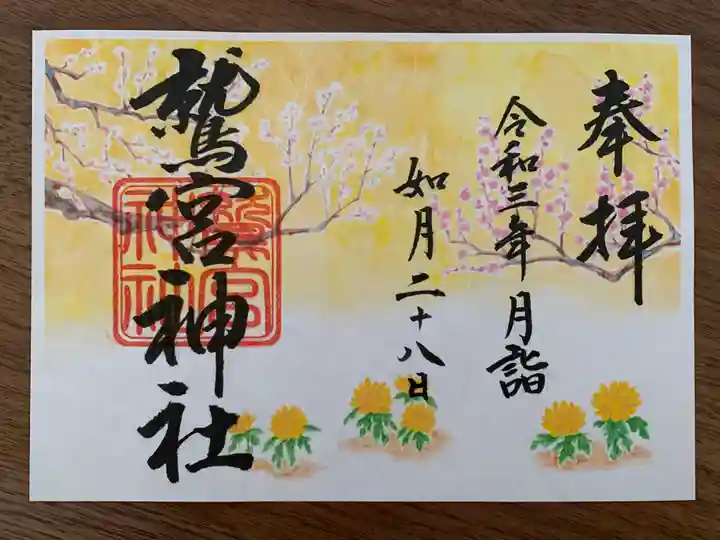 奉拝
令和三年月詣
如月二十八日
鷲宮神社
鷲宮
神社